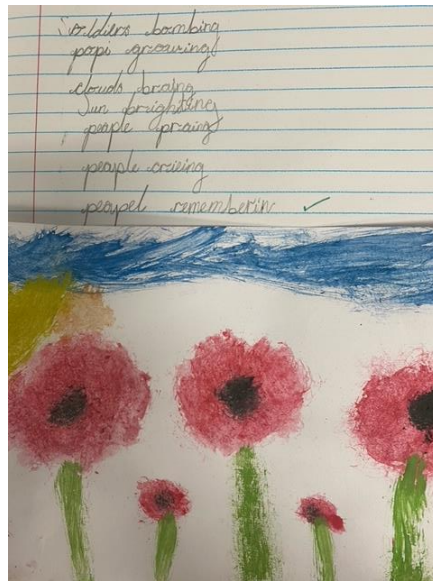 Soldiers bombing
popi growing
clouds braing
Sun brighting
people praing
people crieing
peopel rememberin